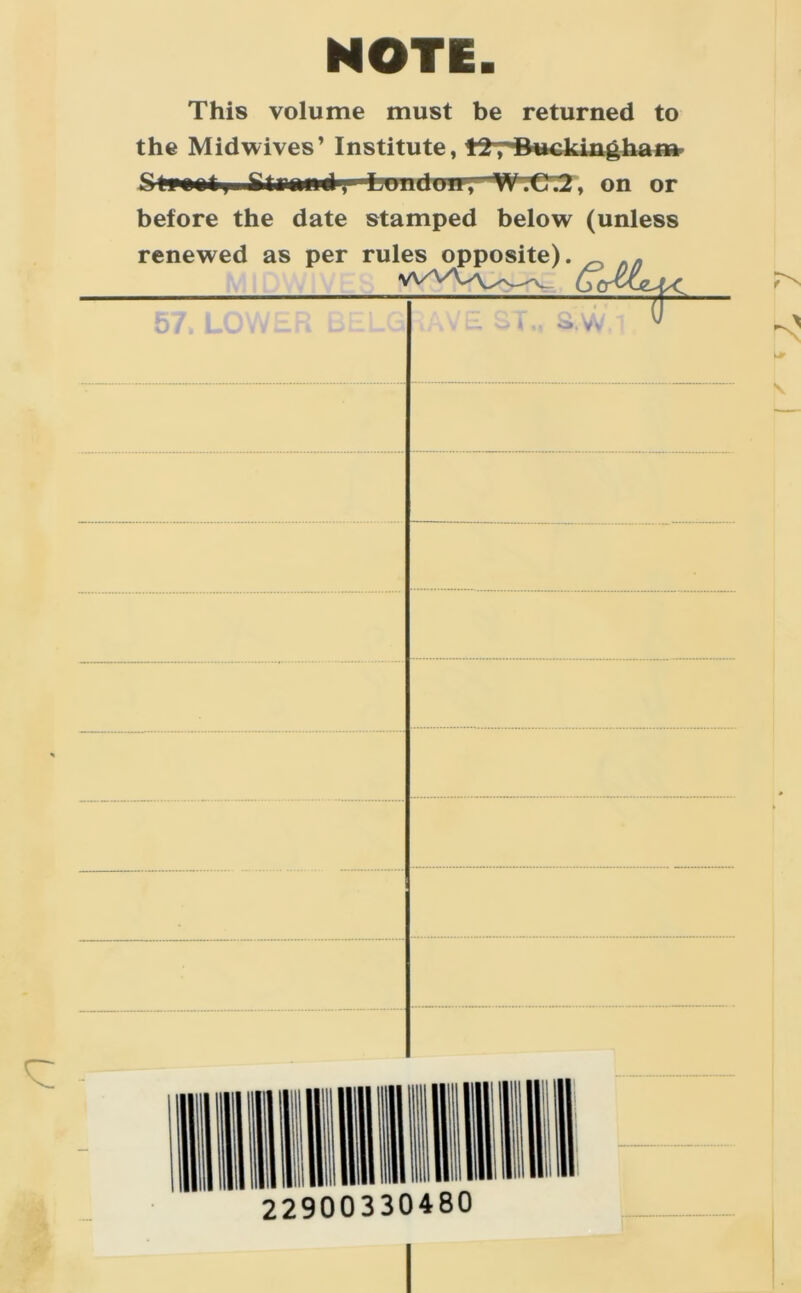 NOTE.
This volume must be returned to
the Midwives’ Institute, 12, Buckingham
Street, Strand, London, W.C.2, on or
before the date stamped below (unless
renewed as per rules opposite).
MIDWIVES College
57. LOWER BELGRAVE ST., S.W.1
22900330480